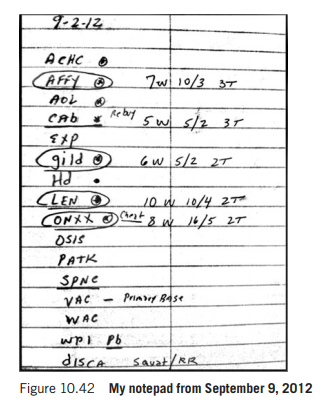 9-2-12
ACHC
AFFY 7w 10/3 3T
AOL
CAb Rebuy 5w 5/2 3T
EXP
gild 6w 5/2 2T
Hd
LEN 10w 10/4 2T
ONXX Chart 8w 16/5 2T
OSIS
PATK
SPNC
VAC - Primary Base
WAC
WPI Pb
dISCA Squat/RR
Figure 10.42 My notepad from September 9, 2012